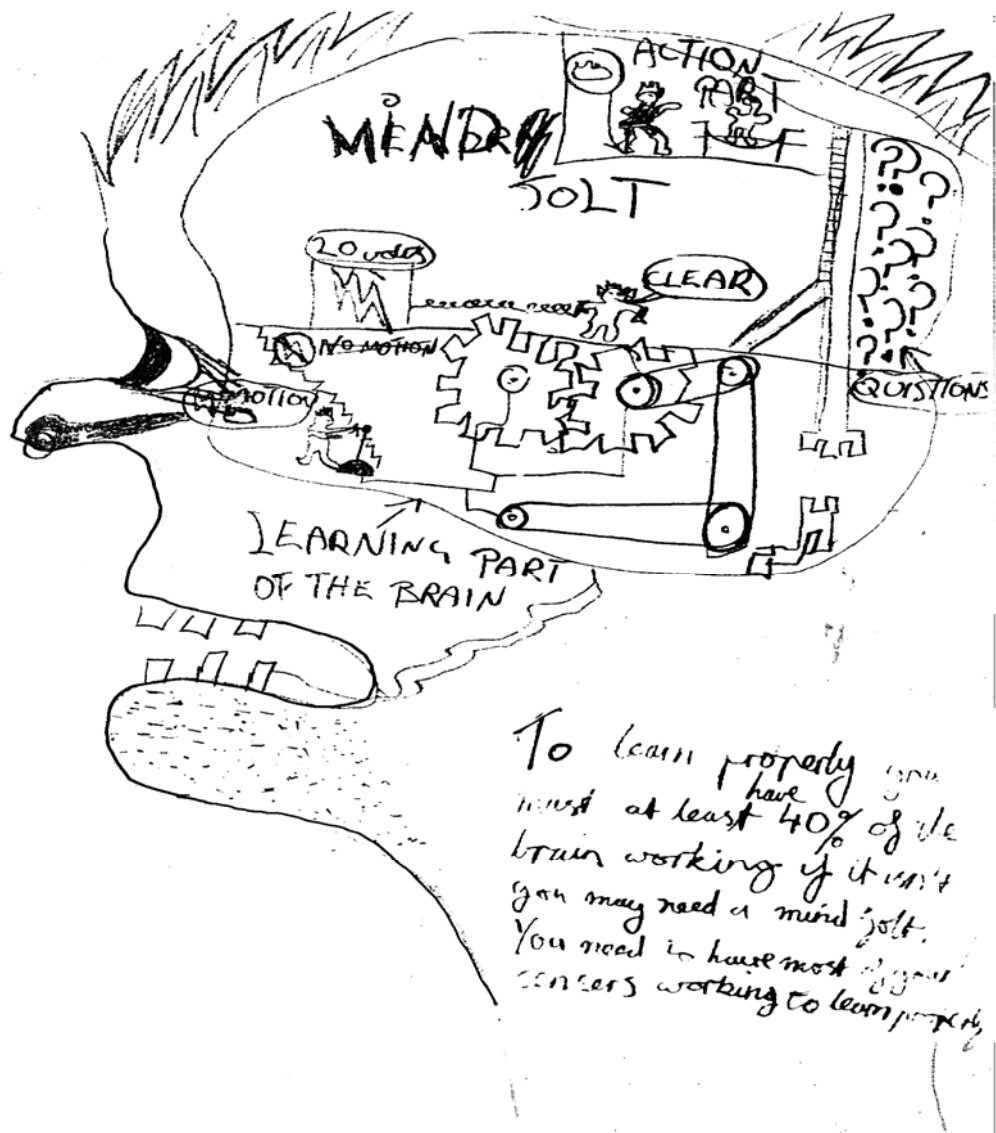 ACTION
PART
MIND
JOLT
20 volts
CLEAR
NO MOTION
MOTION
QUISTIONS
LEARNING PART
OF THE BRAIN
To learn properly you
must at least have 40% of the
brain working if it isn't
you may need a mind jolt.
You need to have most of your
sensers working to learn properly